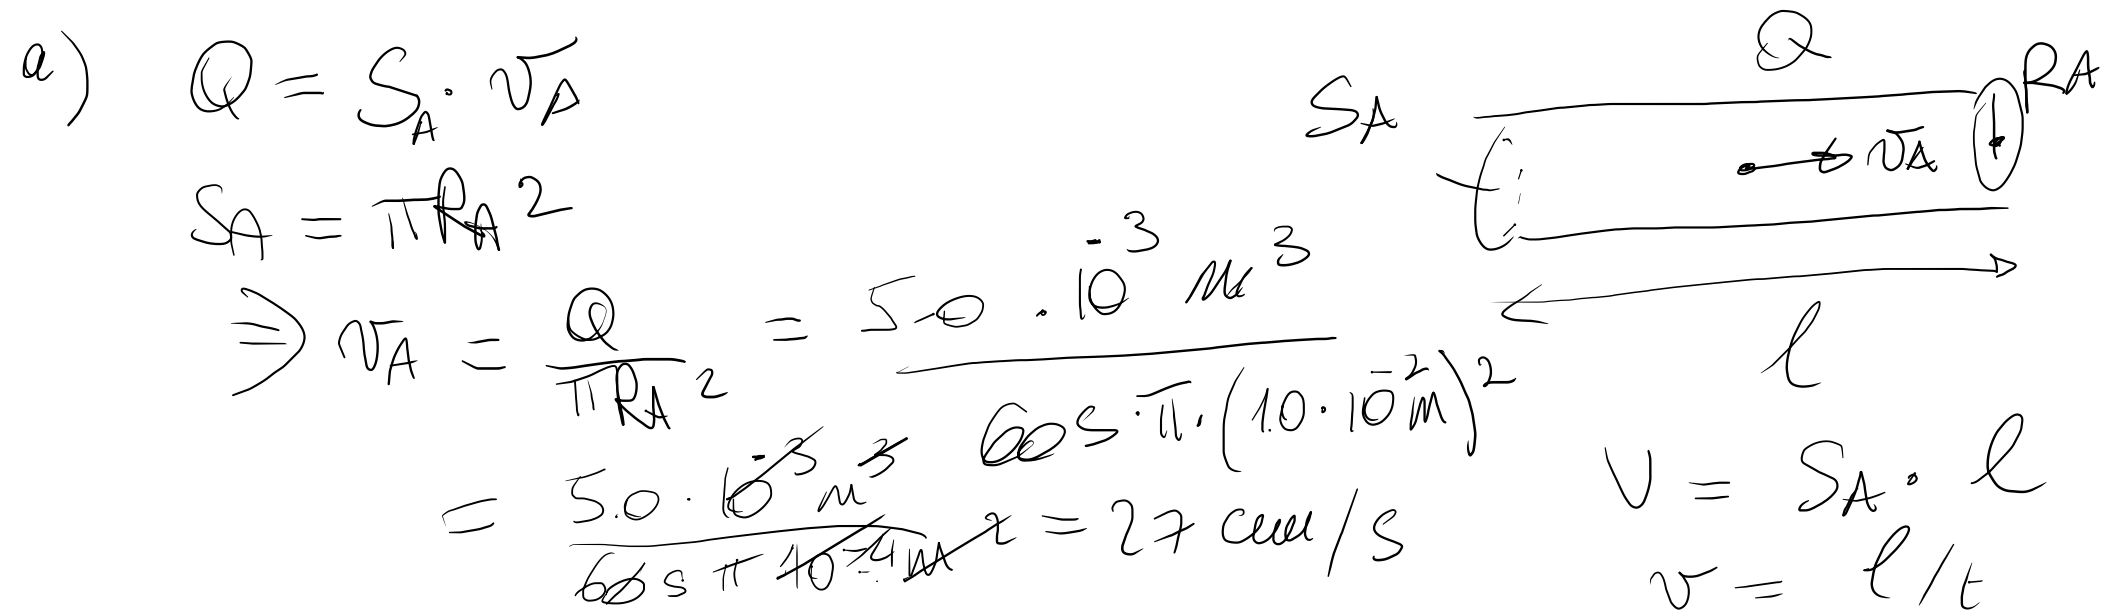 a) Q = S_A · v_A
S_A = πR_A²
⇒ v_A = Q / (πR_A²) = 5.0 · 10⁻³ m³ / (60 s · π · (1.0 · 10⁻² m)²)
= 5.0 · 10⁻³ m³ / (60 s π 10⁻⁴ m²) = 27 cm/s
Q
S_A
R_A
v_A
l
V = S_A · l
v = l/t